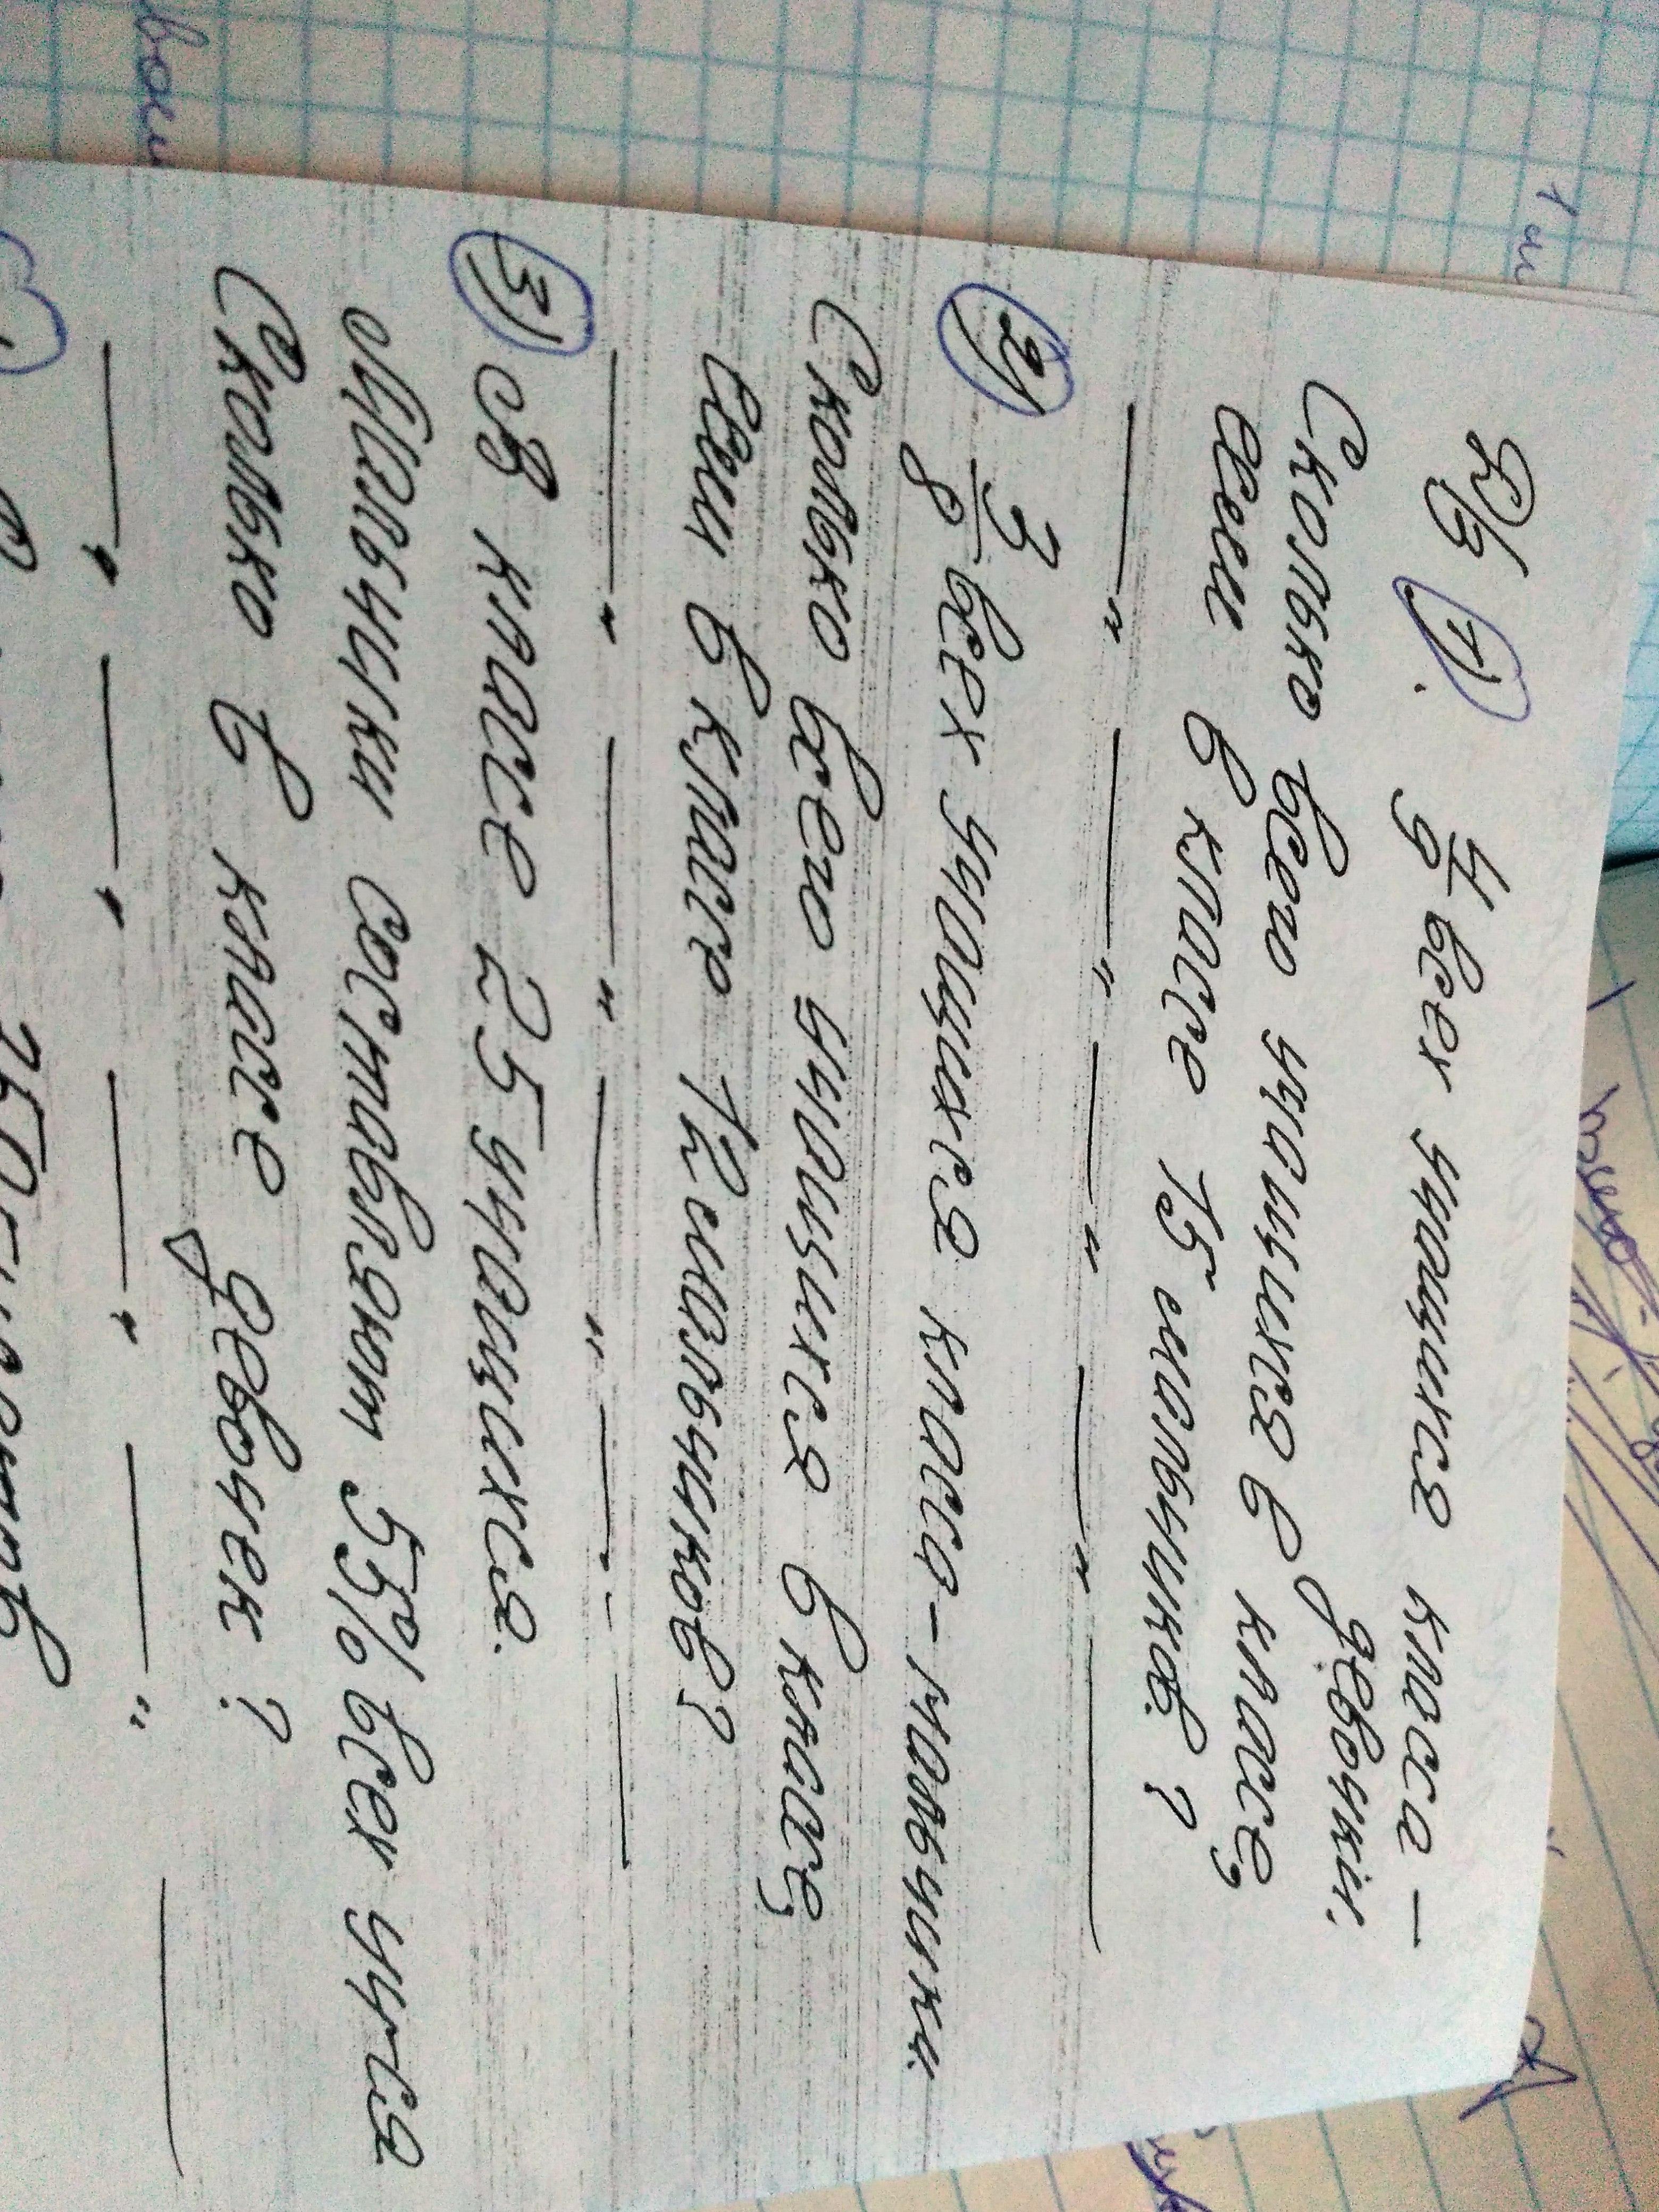 К/Б 1). 4/9 всех учащихся класса -
девочки.
Сколько всего учащихся в классе,
если в классе 15 мальчиков?
2) 3/8 всех учащихся класса - мальчики.
Сколько всего учащихся в классе,
если в классе 12 мальчиков?
3) В классе 25 учащихся.
Мальчики составляют 5% всех учася
Сколько в классе девочек?